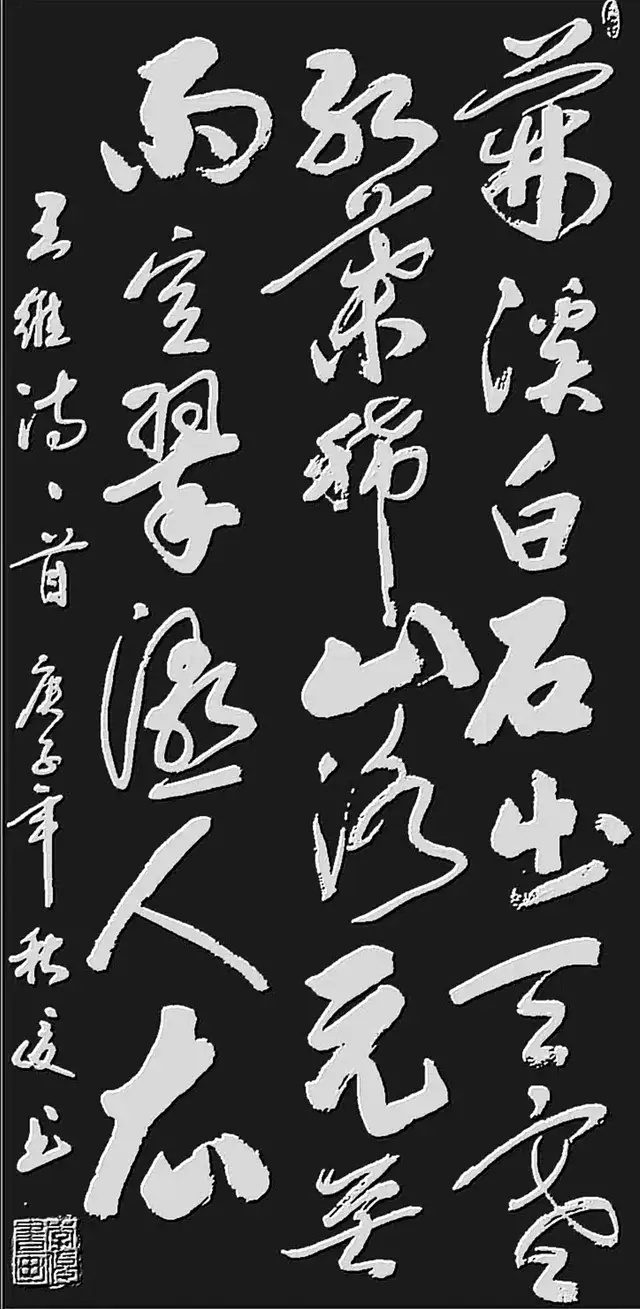 荊溪白石出天寒
紅葉稀山路元無
雨空翠濕人衣
王維詩一首 庚子年秋 书